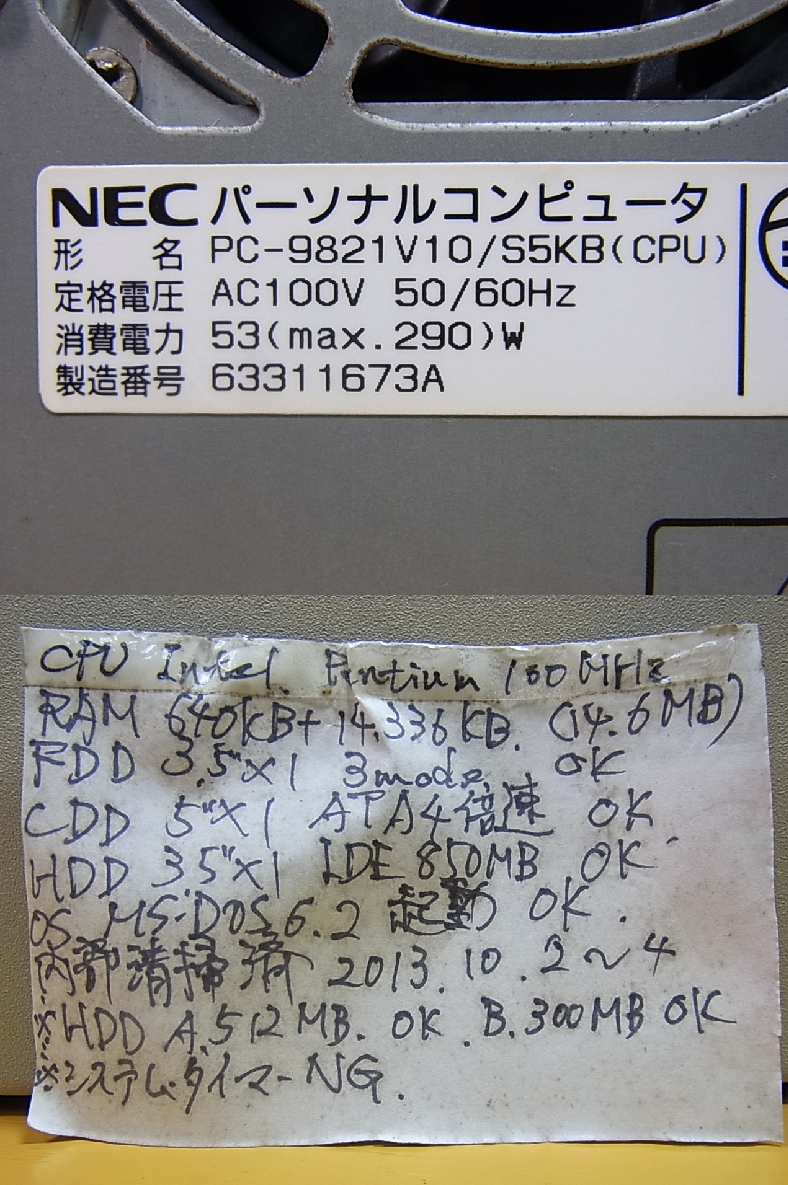 NEC パーソナルコンピュータ
形 名 PC-9821V10/S5KB(CPU)
定格電圧 AC100V 50/60Hz
消費電力 53(max.290)W
製造番号 63311673A
CPU Intel. Pentium 100MHz
RAM 640KB+14.336KB. (14.6MB)
FDD 3.5"×1 3mode. OK
CDD 5"×1 ATA4倍速 OK.
HDD 3.5"×1 IDE 850MB OK.
OS MS-DOS 6.2 起動 OK.
内部清掃済 2013.10.2~4
※HDD A.512MB. OK. B.300MB OK
※システムタイマーNG.